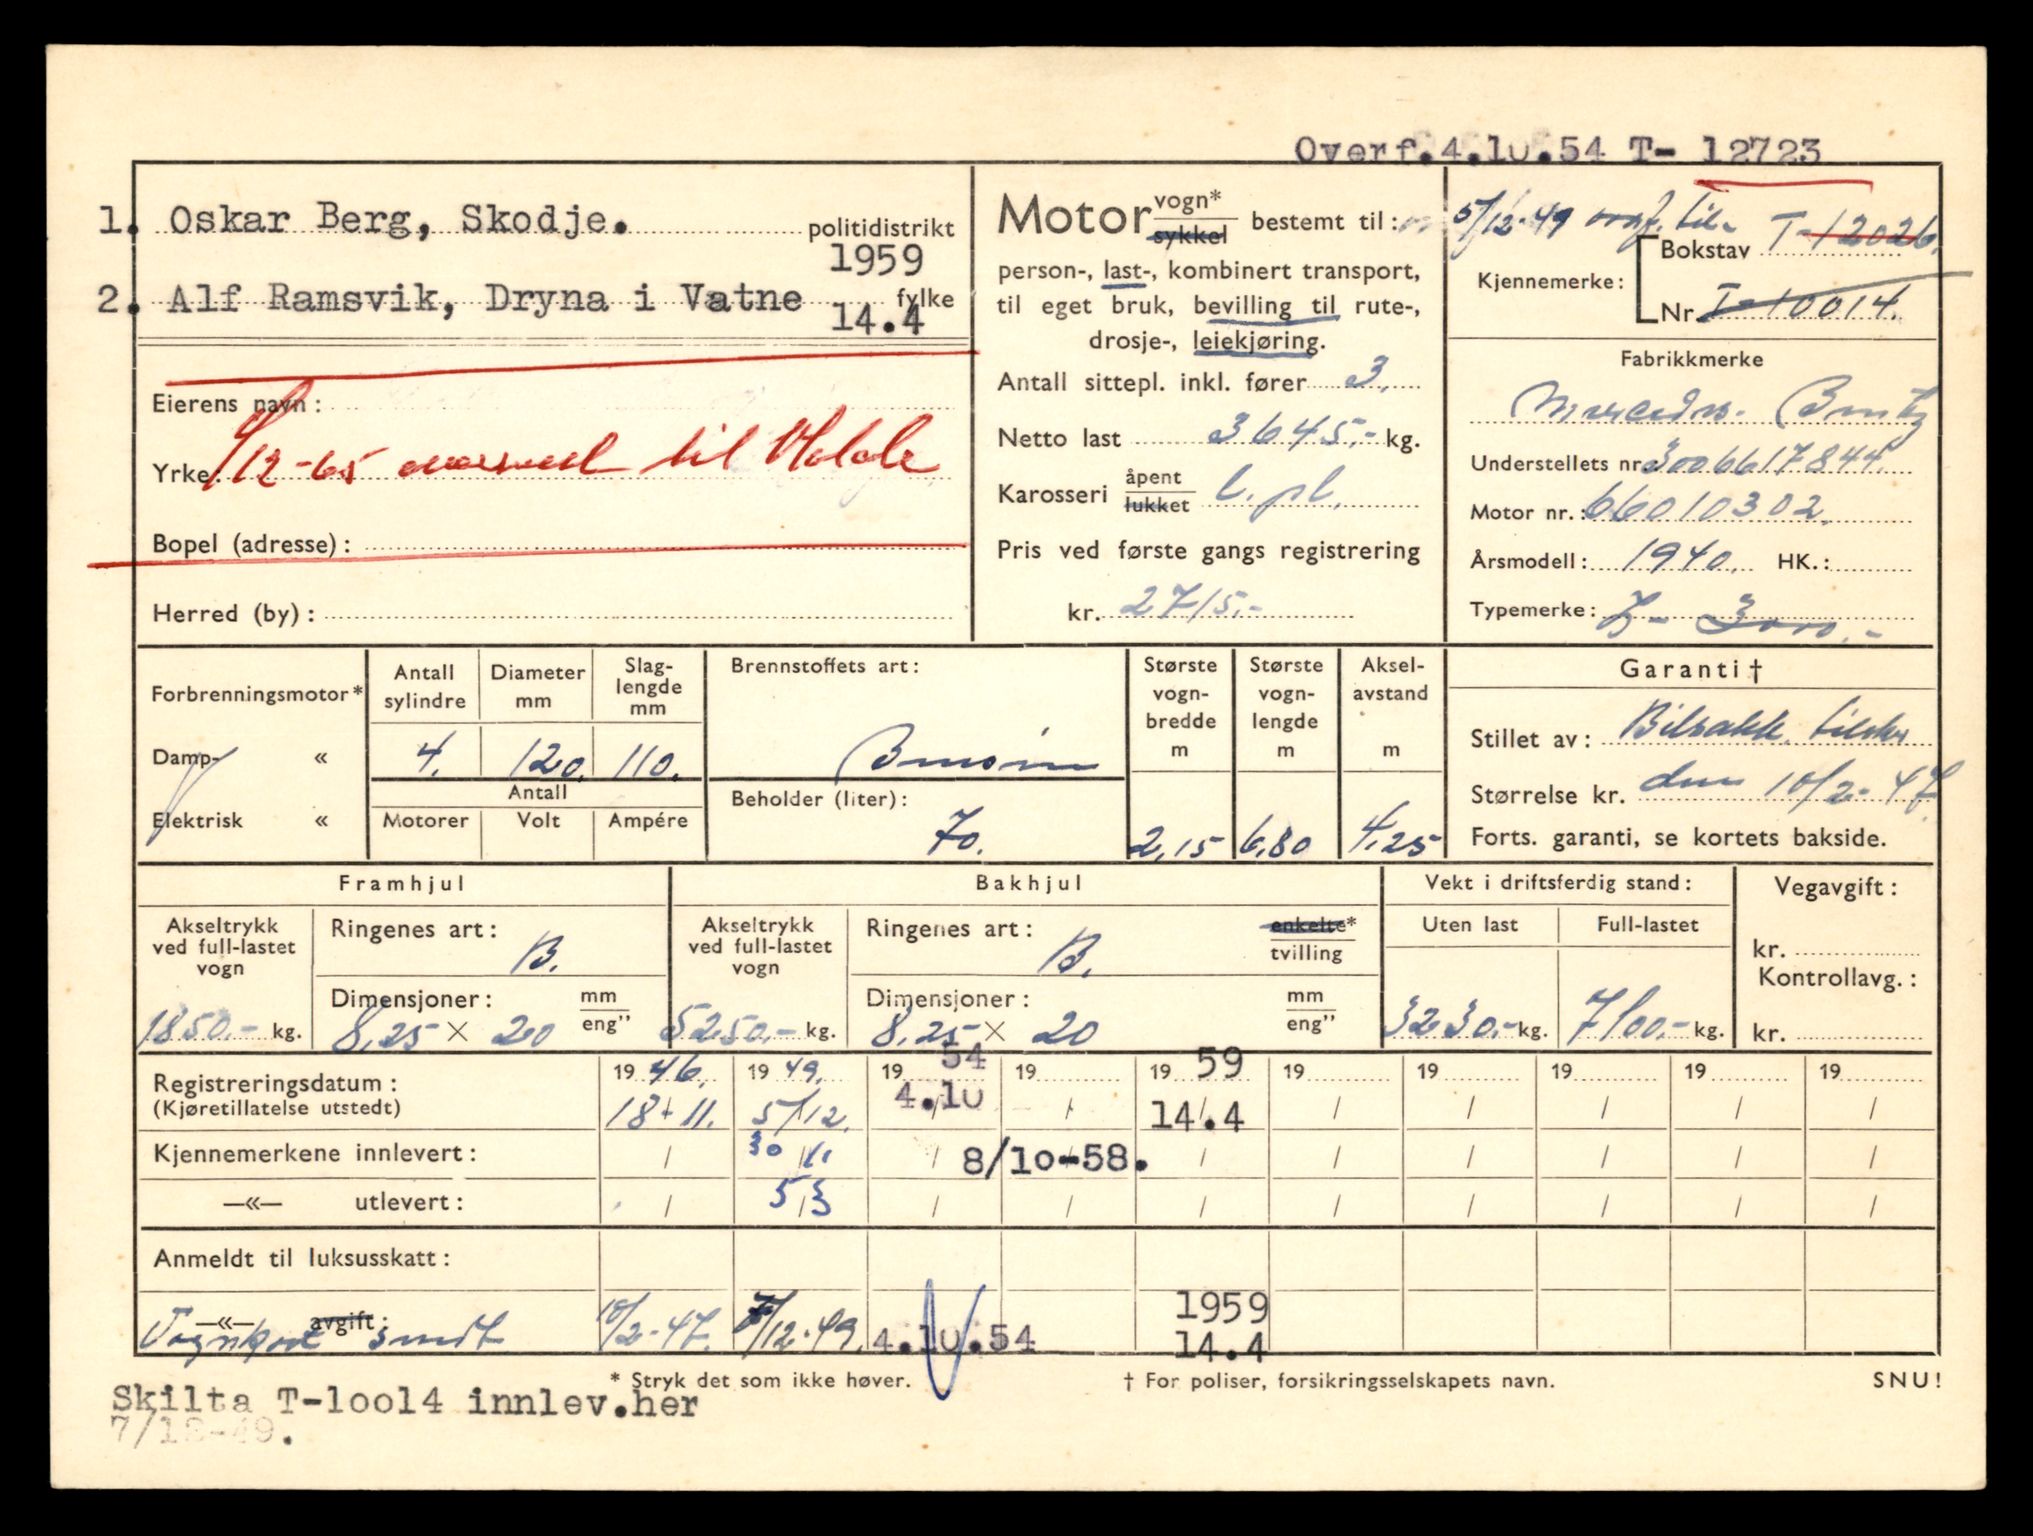 Overf.4.10.54 T- 12723
1. Oskar Berg, Skodje. politidistrikt
1959
2. Alf Ramsvik, Dryna i Vatne fylke
14.4
Eierens navn:
Yrke:
/12-65 til Molde
Bopel (adresse):
Herred (by):
Motor vogn* sykkel bestemt til:
person-, last-, kombinert transport,
til eget bruk, bevilling til rute-,
drosje-, leiekjøring.
Antall sittepl. inkl. fører 3.
Netto last 3645.- kg.
Karosseri åpent lukket l. pl.
Pris ved første gangs registrering
kr. 2715.-
5/12-49 overf. til T-12026.
Kjennemerke: Bokstav
Nr. T-10014.
Fabrikkmerke
Mercedes-Bentz
Understellets nr. 3006617844.
Motor nr.: 66010302.
Årsmodell: 1940. HK.:
Typemerke: L-3000.-
Forbrenningsmotor*
Damp- «
Elektrisk «
Antall sylindre
4.
Diameter mm
120.
Slag-lengde mm
110.
Antall
Motorer Volt Ampére
Brennstoffets art:
Bensin
Beholder (liter):
70.
Største vogn-bredde m
2,15
Største vogn-lengde m
6,80
Aksel-avstand m
4,25
Garanti†
Stillet av: Bilsakk. tilsher
Størrelse kr. den 10/2-47
Forts. garanti, se kortets bakside.
Framhjul
Akseltrykk ved full-lastet vogn
1850.- kg.
Ringenes art: B.
Dimensjoner: mm eng"
8,25 × 20
Bakhjul
Akseltrykk ved full-lastet vogn
5250.- kg.
Ringenes art: B. enkelte* tvilling
Dimensjoner: mm eng"
8,25 × 20
Vekt i driftsferdig stand:
Uten last Full-lastet
3230.- kg. 7100.- kg.
Vegavgift:
kr.
Kontrollavg.:
kr.
Registreringsdatum: 19 46. 19 49. 19 54 19 19 59 19 19 19 19 19
(Kjøretillatelse utstedt) 18-11. 5/12. 4.10 / 14.4 / / / / /
Kjennemerkene innlevert: / 30/11 / 8/10-58. / / / / / /
—«— utlevert: / 5/3 / / / / / / / /
Anmeldt til luksusskatt:
—«— avgift:
Vognkort sendt 10/2-47. 7/12-49. 4.10.54 1959 14.4
* Stryk det som ikke høver.
† For poliser, forsikringsselskapets navn.
SNU!
Skilta T-10014 innlev.her
7/12-49.